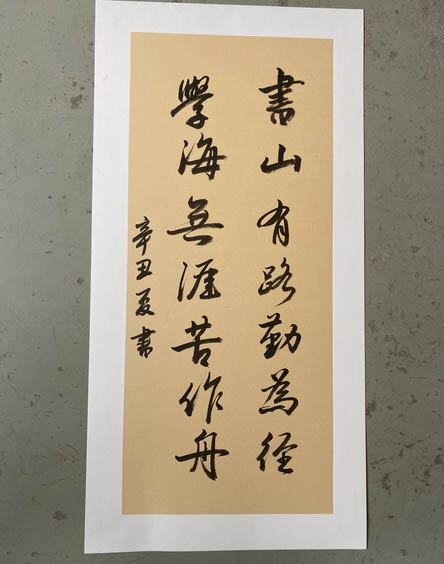 書山有路勤為徑
學海無涯苦作舟
辛丑夏書